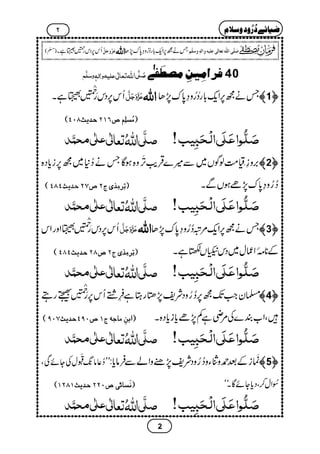 ضیائے دُرُود و سلام
۲
فرمانِ مصطفٰے صلی اللہ تعالٰی علیہ واٰلہٖ وسلم: جس نے مجھ پر ایک بار دُرُودِ پاک پڑھا اللہ عزوجل اُس پر دس رحمتیں بھیجتا ہے۔ (مسلم)
40 فرامینِ مصطفٰے صلَّی اللہُ تعالٰی علیہ واٰلہٖ وسلَّم
﴿1﴾ جس نے مجھ پر ایک بار دُرُودِ پاک پڑھا اللہ عَزَّوَجَلَّ اُس پر دس رحمتیں بھیجتا ہے۔
(مُسلِم ص۲۱۶ حدیث ۴۰۸)
صَلُّوْا عَلَی الْحَبِیْب! صلَّی اللہُ تعالٰی علٰی محمَّد
﴿2﴾ بروزِ قیامت لوگوں میں سے میرے قریب تر وہ ہوگا جس نے دُنیا میں مجھ پر زیادہ
دُرُودِ پاک پڑھے ہوں گے۔
(تِرمِذی ج۲ ص۲۷ حدیث ۴۸۴)
صَلُّوْا عَلَی الْحَبِیْب! صلَّی اللہُ تعالٰی علٰی محمَّد
﴿3﴾ جس نے مجھ پر ایک مرتبہ دُرُودِ پاک پڑھا اللہ عَزَّوَجَلَّ اُس پر دس رحمتیں بھیجتا اور اس
کے نامۂ اعمال میں دس نیکیاں لکھتا ہے۔
(تِرمِذی ج۲ ص۲۸ حدیث ۴۸۴)
صَلُّوْا عَلَی الْحَبِیْب! صلَّی اللہُ تعالٰی علٰی محمَّد
﴿4﴾ مسلمان جب تک مجھ پر دُرُود شریف پڑھتا رہتا ہے فرشتے اُس پر رحمتیں بھیجتے رہتے
ہیں، اب بندے کی مرضی ہے کم پڑھے یا زیادہ۔
(ابنِ ماجہ ج۱ ص۴۹۰ حدیث ۹۰۷)
صَلُّوْا عَلَی الْحَبِیْب! صلَّی اللہُ تعالٰی علٰی محمَّد
﴿5﴾ نماز کے بعد حمد و ثنا و دُرُود شریف پڑھنے والے سے فرمایا: ”دعا مانگ قبول کی جائے گی،
سُوال کر، دیا جائے گا۔“
(نَسائی ص۲۲۰ حدیث ۱۲۸۱)
صَلُّوْا عَلَی الْحَبِیْب! صلَّی اللہُ تعالٰی علٰی محمَّد
2